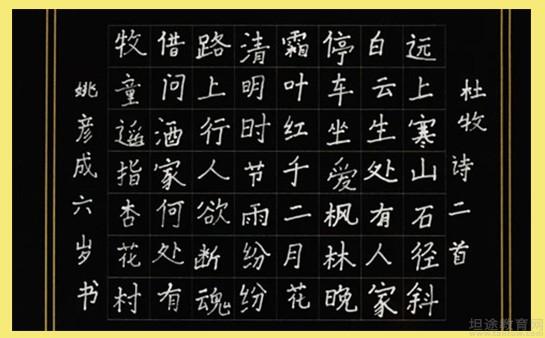 杜牧诗二首
远上寒山石径斜
白云生处有人家
停车坐爱枫林晚
霜叶红于二月花
清明时节雨纷纷
路上行人欲断魂
借问酒家何处有
牧童遥指杏花村
姚彦成六岁书
坦途教育网